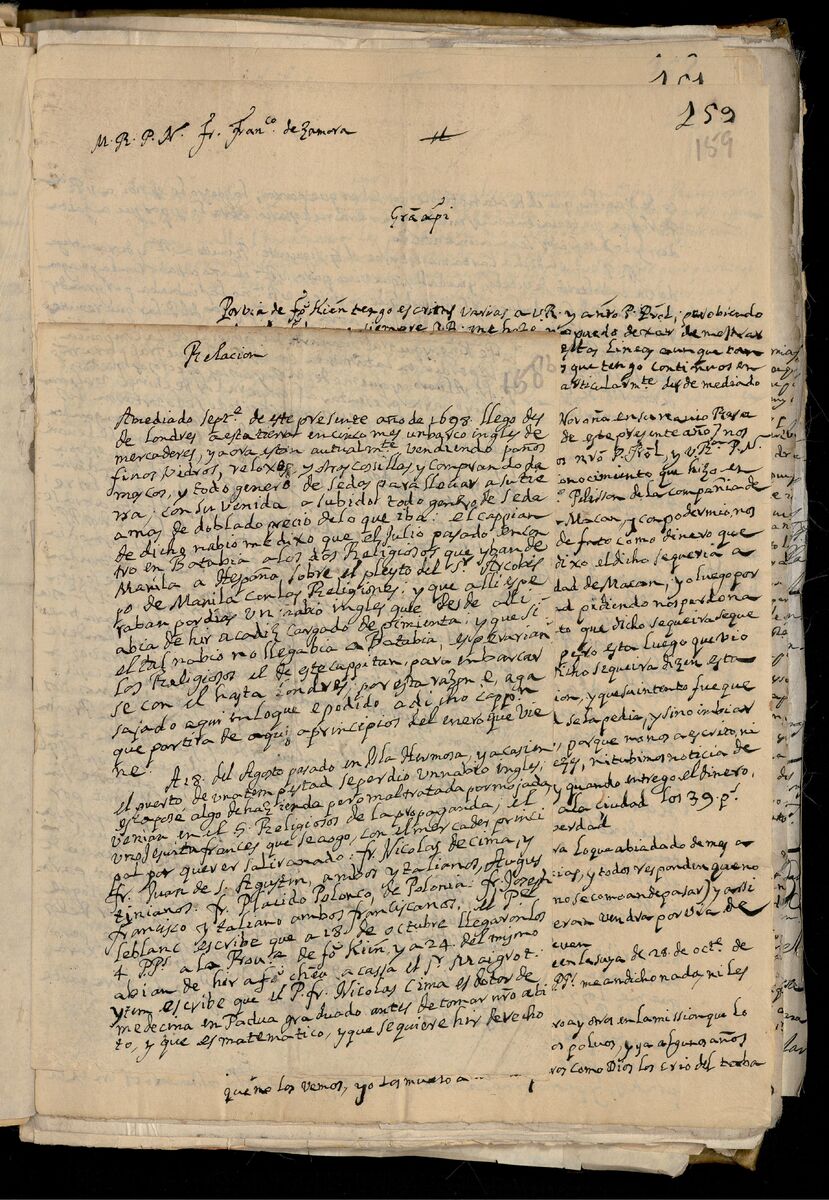 159
159
M. R. P. N. fr. Franco. de Zamora
Grã a pi
Por via de fo Kién tengo escritas varias a V.R. y a nro P. Prol; pero biendo
siempre V.R. me hizo no puedo dexar de mostrar
estas lineas aunque con
y que tengo continuos en
articularmte. desde mediado
Relacion
158
A mediado Septe. de este presente año de 1698 llego des
de Londres a esta tierra en cinco mes un barco ingles de
mercaderes, y aora estan actualmte. vendiendo paños
finos Vidros, reloxes y otras cosillas y comprando da
mascos, y todo genero de sedas para llevar a su tie
rra; con su venida a subido todo genero de seda
a mas de doblado precio de lo que iba: el cappitan
de dicho nabio me dixo que el Julio pasado encon
tro en Batabia a los dos Religiosos que yban de
Manila a Hespaña, sobre el pleyto del Sr. Arcobis
po de Manila con las Religiones: y que alli espe
raban por dias un nabio ingles que desde alli
abia de hir a cadiz cargado de pimienta; y que si
el tal nabio no llegaba a Batabia, esperarian
los Religiosos el de este cappitan, para embarcar
se con el hasta Londres; por esta razon e, aga
sajado aqui en lo que e podido a dicho cappn
que partira de aqui a principios del enero que vie
ne.
A 18. del Agosto pasado en Isla Hermosa, y a casi en
el puerto de una tempestad se perdio un nabio ingles,
escapose algo de hazienda pero maltratada por mojada,
venian en el 5 Religiosos de la propaganda; el
uno Jesuita frances que se aogo, con el mercader princi
pal por querer salir a nado: fr. Nicolas de cima, y
fr. Juan de S. Agustin, ambos ytalianos, Augus
tinianos: fr. Placido Polonco, de Polonia: fr. Joseph
francisco ytaliano ambos franciscanos, el P. e
leblanc escribe que a 18 de octubre llegaron los
4 PPs. a la Prova. de fo Kién, y a 24 del mismo
abian de hir a fo cheu a cassa el Sr. Maigrot:
yten escribe que el P. fr. Nicolas Cima es dotor de
medecina en Padua graduado antes de tomar nro abi
to, y que es matematico, y que se quiere hir derecho
de este presente año) nos
os nro P. Prol, y V. R. P. N.
onocimiento que hizo en
P. Pelisson de la Compañia de
Macan, y con poder mio, nos
de fato como dinero que
dixo el dicho sequeria a
dad de Macan, y luego por
d pidiendo nos perdona
to que dicho sequeira se que
pero esta luego que vio
dicho sequeira dizen esta
ion, y que su intento fue que
l se la pedia, y sino imbiar
porque mo nos a escrito, ni
ces, ni tubimos noticia de
y quando entrego el dinero,
a la ciudad los 39 ps.
verdad
ra lo que abia dado de mes a
cias, y todos responden que no
no se como ande pasar) y assi
eran vendra por via de
en la suya de 28. de octe. de
PPs. me an dicho nada, ni les
ro a y otros en la mission que lo
os polvos, y ya algunos años
ros como Dios los crio del texba
que no los vemos, yo los muero a